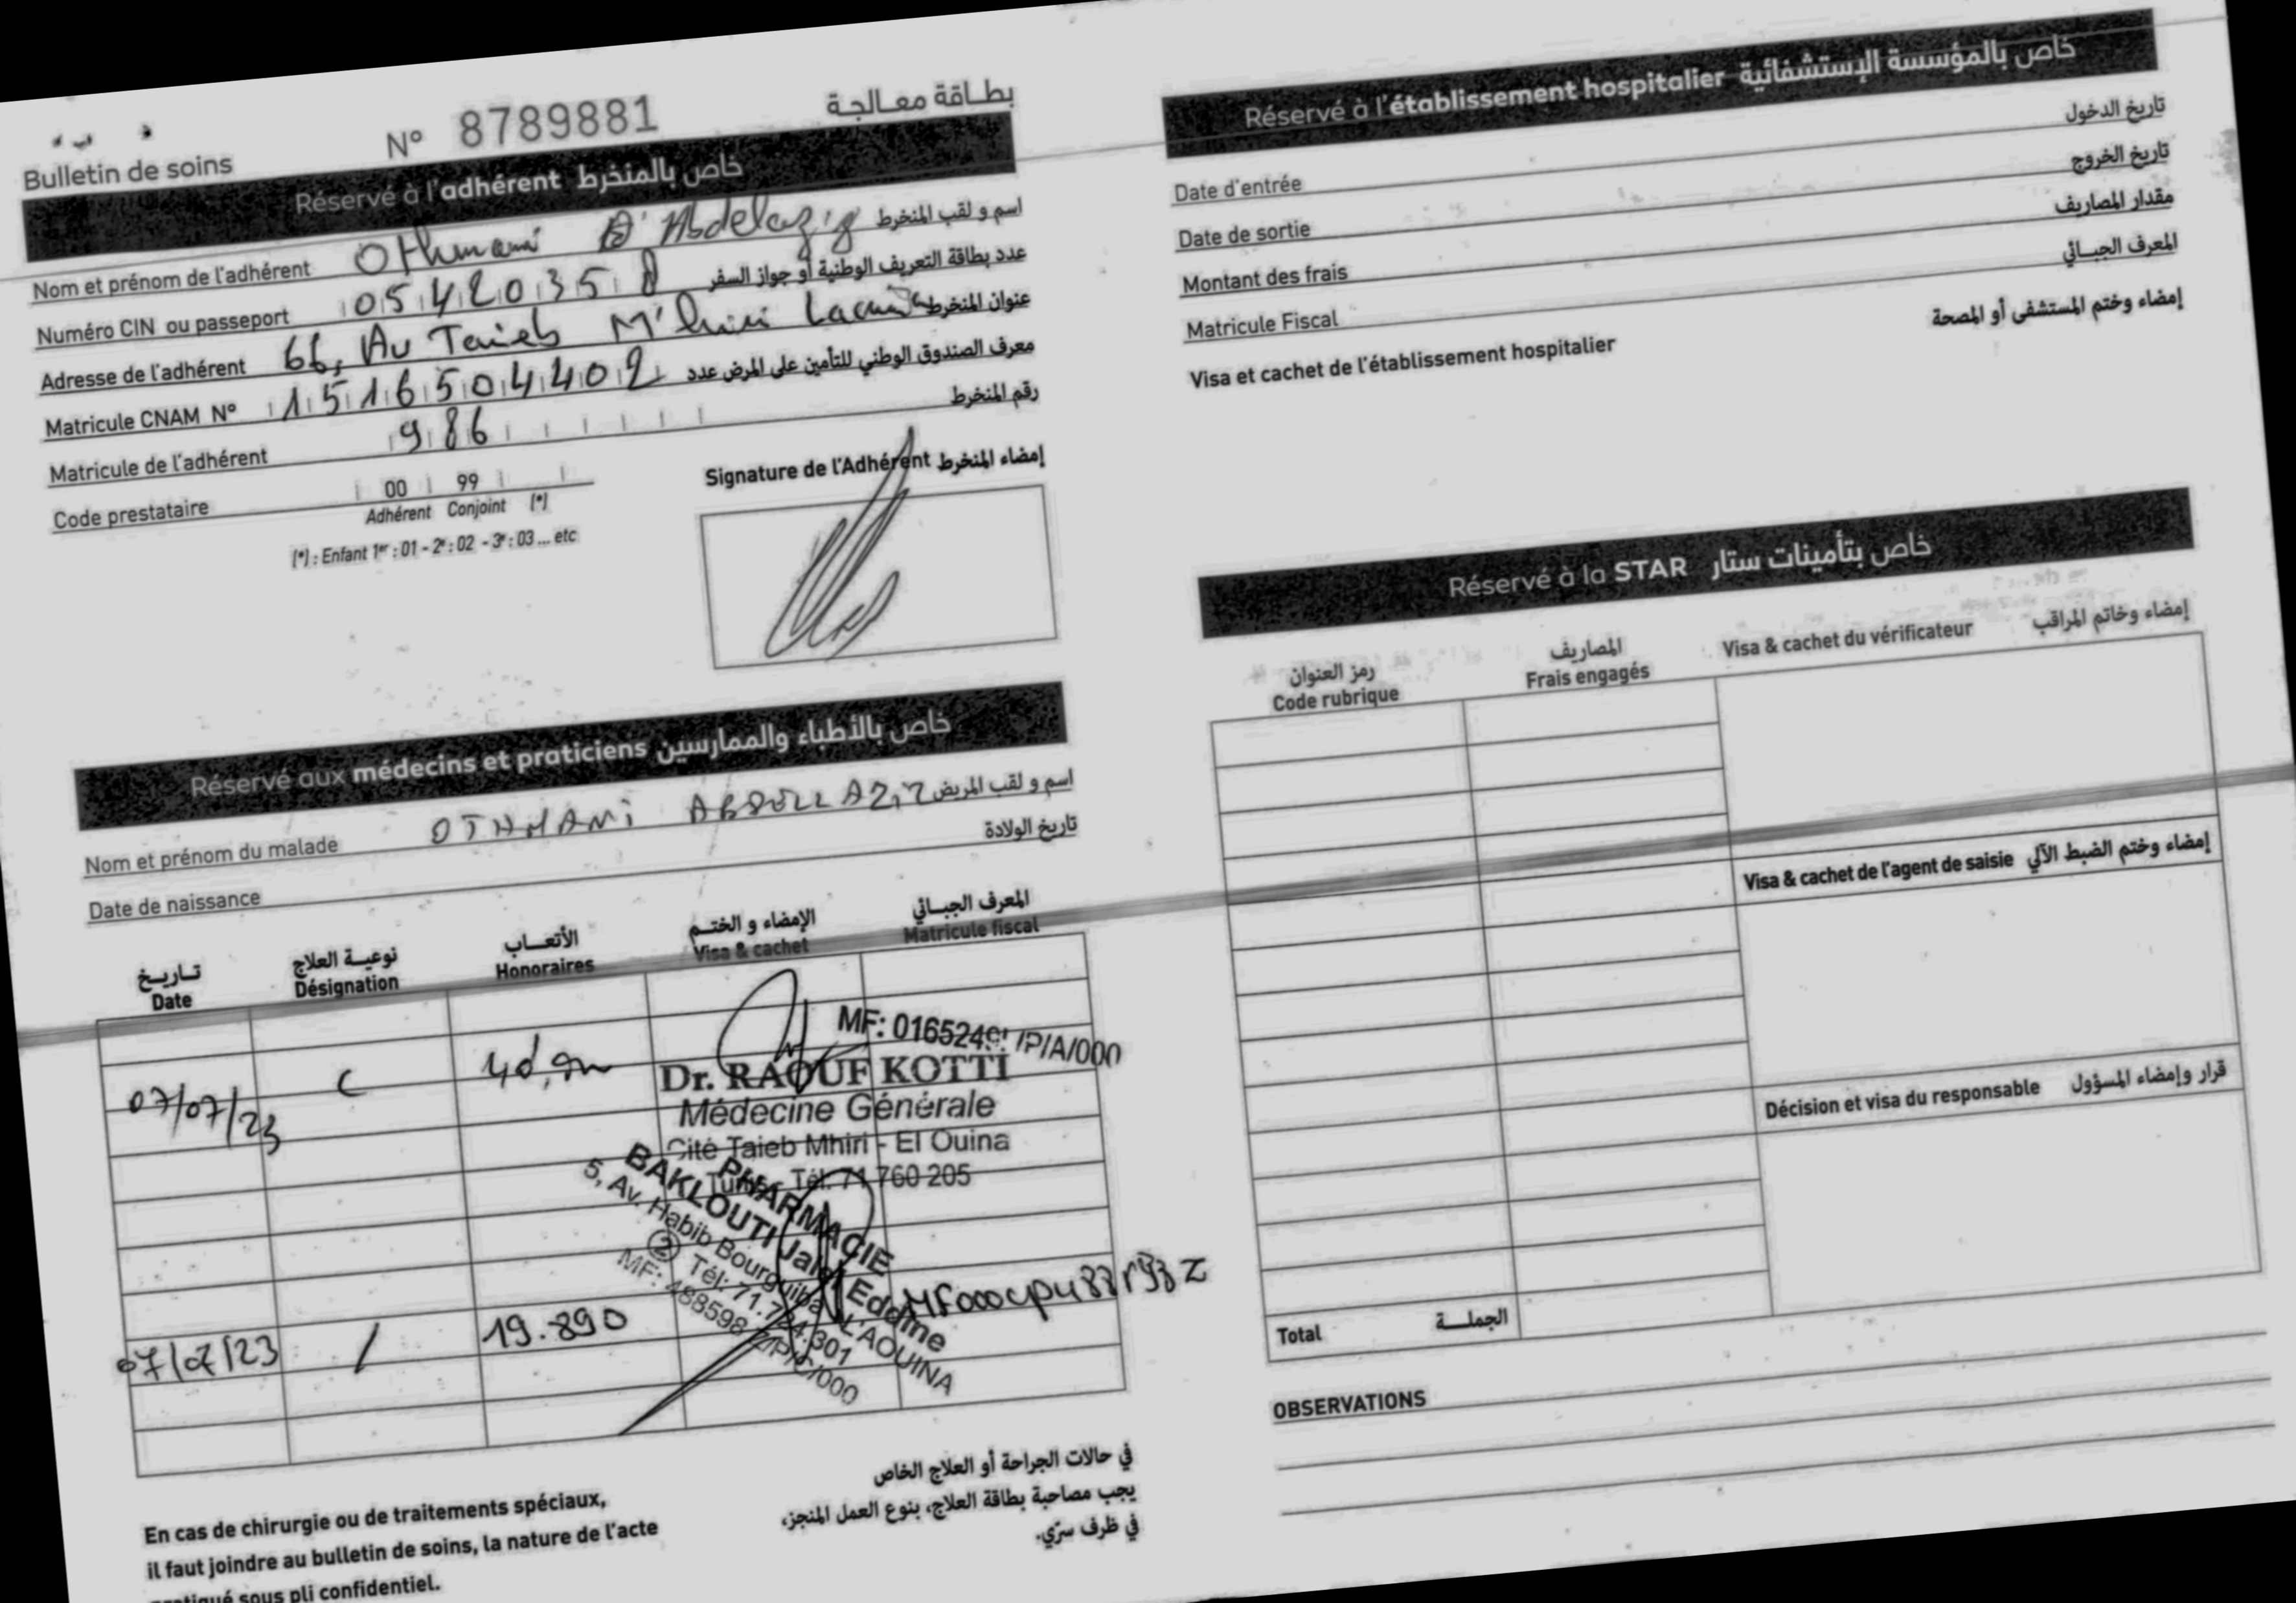 بطاقة معالجة
N° 8789881
Bulletin de soins
Réservé à l'adhérent خاص بالمنخرط
Nom et prénom de l'adhérent Othmani Abdelaziz اسم و لقب المنخرط
Numéro CIN ou passeport 05420358 عدد بطاقة التعريف الوطنية أو جواز السفر
Adresse de l'adhérent 66, Av Taieb M'hiri عنوان المنخرط
Matricule CNAM N° 15165044402 معرف الصندوق الوطني للتأمين على المرض عدد
Matricule de l'adhérent 986 رقم المنخرط
Code prestataire 00 99
Adhérent Conjoint (*)
(*) : Enfant 1er : 01 - 2e : 02 - 3e : 03 ... etc
Signature de l'Adhérent إمضاء المنخرط
Réservé aux médecins et praticiens خاص بالأطباء والممارسين
Nom et prénom du malade OTHMANI ABDELLAZIZ اسم و لقب المريض
Date de naissance تاريخ الولادة
تـاريـخ نوعيـة العلاج الأتعـاب الإمضاء و الختـم المعرف الجبـائي
Date Désignation Honoraires Visa & cachet Matricule fiscal
07/07/23 C
MF: 0165249 /P/A/000
Dr. RAOUF KOTTI
Médecine Générale
Cité Taieb Mhiri - El Ouina
Tunis - Tél. 71 760 205
PHARMACIE
BAKLOUTI Jalel Eddine
5, Av. Habib Bourguiba L'AOUINA
Tél: 71.724.301
MF: 488598 Z/P/C/000
07/07/23 / 19.890
En cas de chirurgie ou de traitements spéciaux,
il faut joindre au bulletin de soins, la nature de l'acte
pratiqué sous pli confidentiel.
في حالات الجراحة أو العلاج الخاص
يجب مصاحبة بطاقة العلاج، بنوع العمل المنجز،
في ظرف سرّي.
Réservé à l'établissement hospitalier خاص بالمؤسسة الإستشفائية
Date d'entrée تاريخ الدخول
Date de sortie تاريخ الخروج
Montant des frais مقدار المصاريف
Matricule Fiscal المعرف الجبـائي
Visa et cachet de l'établissement hospitalier إمضاء وختم المستشفى أو المصحة
Réservé à la STAR خاص بتأمينات ستار
رمز العنوان المصاريف
Code rubrique Frais engagés Visa & cachet du vérificateur إمضاء وخاتم المراقب
Visa & cachet de l'agent de saisie إمضاء وختم الضبط الآلي
Décision et visa du responsable قرار وإمضاء المسؤول
Total الجملـة
OBSERVATIONS